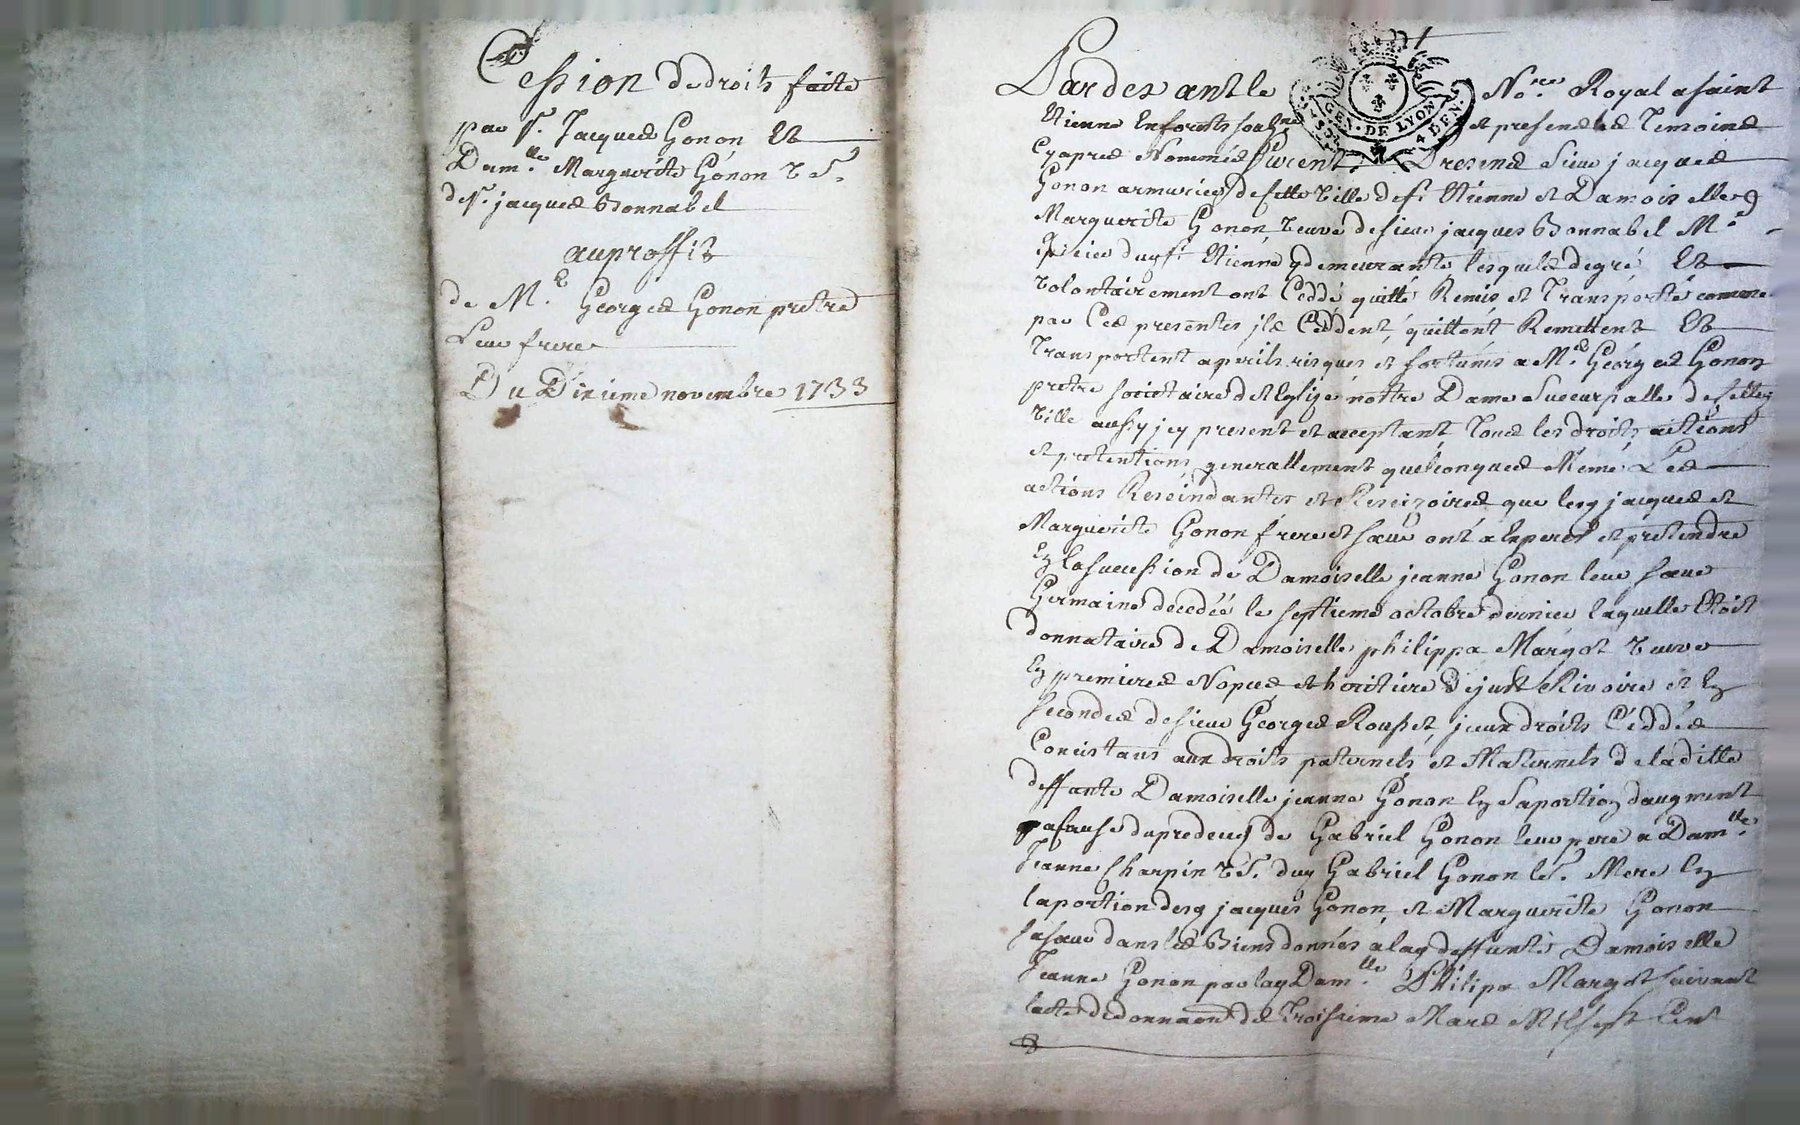 Cession de droits faite
par Sr. Jacques Gonon Et
Damlle. Marguerite Gonon Ve.
de Sr. jacques Bonnabel
au proffit
de Mre. Georges Gonon pretre
Leur frere
Du Dixieme novembre 1733
Pardevant le Nore. Royal a saint
Etienne En forests soussigné et presens les Temoins
Cy apres Nommés furent Presens Sieur jacques
Gonon armurier de cette Ville de St. Etienne et Damoiselle
Marguerite Gonon Veuve de sieur jacques Bonnabel Md.
dud. St. Etienne y demeurants, lesquels de gré Et
Volontairement ont Ceddé quitté Remis et Transporté comme
par Ces presentes jls Ceddent, quittent Remettent Et
Transportent a perils risques et fortunes a Mre. Georges Gonon
pretre societaire de leglise nottre Dame Succursalle de cette
Ville aussy jcy present et acceptant, Tous les droits actions
et pretentions generallement quelconques Meme Les
actions Rescindantes et Rescizoires que lesd. jacques et
Marguerite Gonon frere et sœur ont a Esperer et pretendre
En la succession de Damoiselle jeanne Gonon leur sœur
Germaine decedée le septieme octobre dernier laquelle Etoit
donnataire de Damoiselle philippa Margot Veuve
En premieres Nopces et heritiere de just Rivoire et En
secondes de sieur Georges Rousset, jceux droits Céddés
Concistans aux droits paternels et Maternels de la ditte
deffante Damoiselle jeanne Gonon En Sa portion d'augment
a cause du predeces de Gabriel Gonon leur pere a Damlle.
Jeanne Charpin Ve. dud. Gabriel Gonon le. Mere En
la portion desd. jacques Gonon et Marguerite Gonon
sa sœur dans les Biens donnés a lad. deffunte Damoiselle
Jeanne Gonon par lad. Damlle. Philipa Margot suivant
lacte de donnaon. de Troisieme Mars Mil sept Cent
GEN. DE LYON